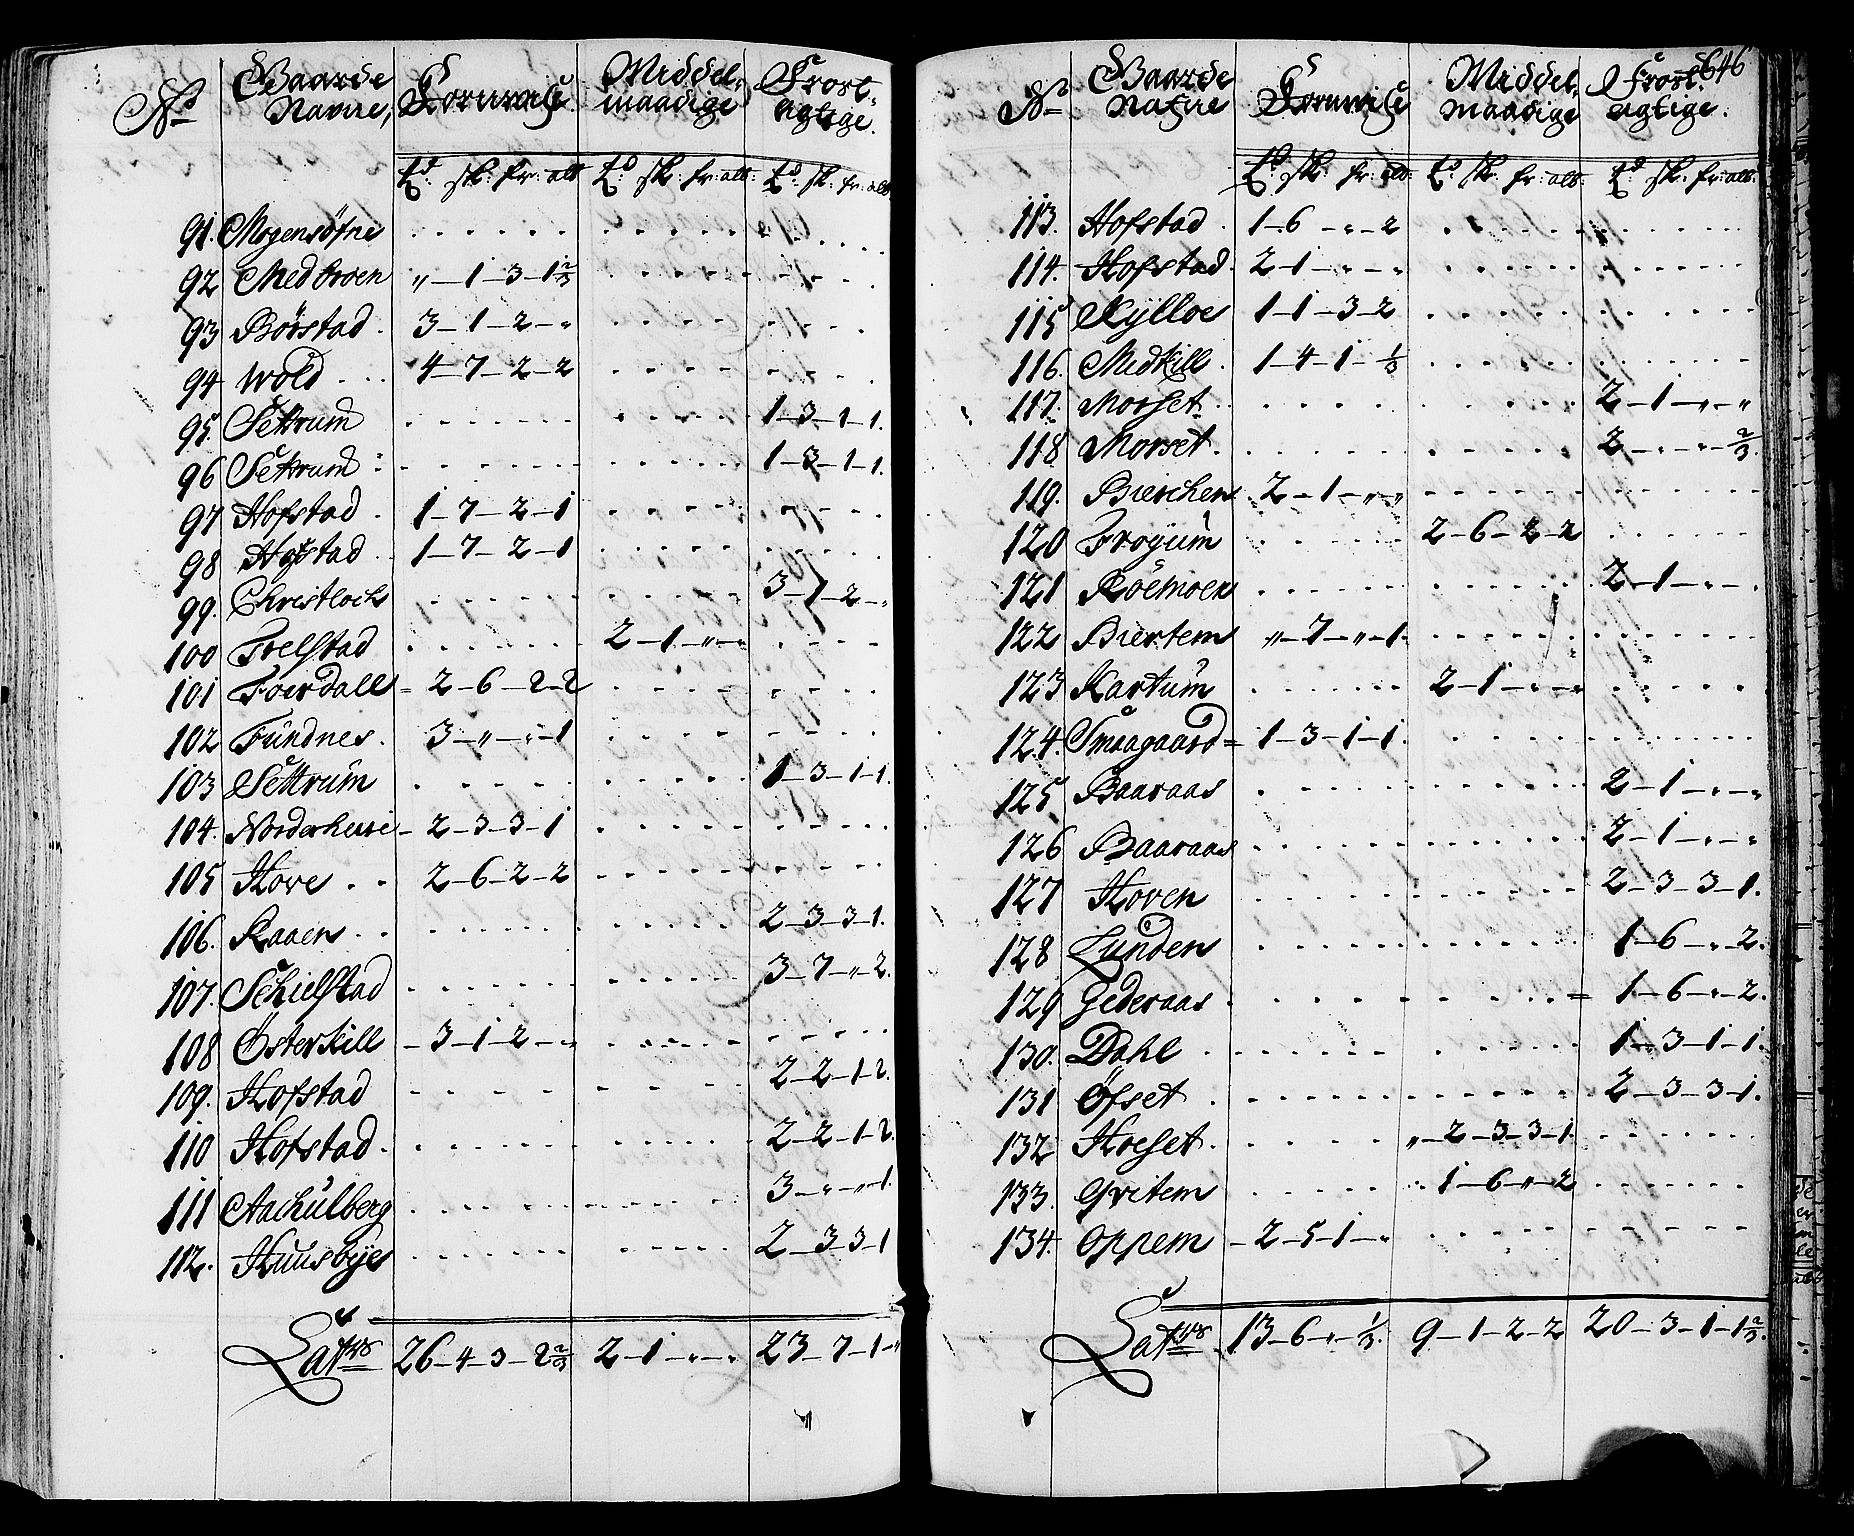 No Gaarde Navne, Kornvise Middelmaadige Frostagtige.
td: sk: fr: alb td: sk: fr: alb: td: sk: fr: alb
91. Mogensöfne
92 Medbroen „ – 1 – 3 – 1 2/3
93 Börstad. 3 – 1 – 2 – „
94 Wold 4 – 7 – 2 – 2
95. Settrum 1 – 3 – 1 – 1.
96 Settrum 1 – 3 – 1 – 1.
97 Hofstad 1 – 7 – 2 – 1
98 Hofstad 1 – 7 – 2 – 1
99. Christloch 3 – 7 – 2 – „
100 Frelstad 2 – 1 – „ – „
101 Foerdall 2 – 6 – 2 – 2
102 Fundnes. 3 – „ – „ – 1
103 Settrum 1 – 3 – 1 – 1.
104. Norderhuue 2 – 3 – 3 – 1
105 Hove 2 – 6 – 2 – 2
106. Raaen 2 – 3 – 3 – 1.
107. Schielstad 3 – 7 – „ – 2.
108 Österkill 3 – 1 – 2 – „
109. Hofstad 2 – 2 – 1 – 2.
110 Hofstad. 2 – 2 – 1 – 2.
111 Aachulberg 3 – „ – „ – 1.
112. Huusbye 2 – 3 – 3 – 1
Latus 26 – 4 – 3 – 2 2/3 2 – 1 – „ – „ 23 – 7 – 1 – „
646
No Gaarde Nafne Kornvise Middelmaadige Frostagtige.
td: sk: fr: alb: td: sk: fr: alb: td: sk: fr: alb:
113. Hofstad 1 – 6 – „ – 2
114. Hofstad. 2 – 1 – „ – „
115 Kylloe 1 – 1 – 3 – 2
116. Medkill 1 – 4 – 1 – 1/3
117. Morset 2 – 1 – „ – „
118 Morset 2 – „ – „ – 2/3.
119. Bierchen 2 – 1 – „ – „
120 Frøyum 2 – 6 – 2 – 2
121 Röemoen 2 – 1 – „ – „
122 Biertem „ – 7 – „ – 1.
123 Kartum 2 – 1 – „ – „
124. Smaagaard 1 – 3 – 1 – 1.
125 Baaraas 2 – 1 – „ – „
126 Baaraas 2 – 1 – „ – „
127 Hoven 2 – 3 – 3 – 1.
128 Lunden 1 – 6 – „ – 2.
129 Gederaas 1 – 6 – „ – 2.
130. Dahl 1 – 3 – 1 – 1.
131 Öfset 2 – 3 – 3 – 1.
132 Hoeset. „ – 2 – 3 – 3 – 1.
133. Gvitem 1 – 6 – „ – 2
134. Oppem 2 – 5 – 1 – „
Latus 13 – 6 – „ – 1/3. 9 – 1 – 2 – 2 20 – 3 – 1 – 1 2/3.